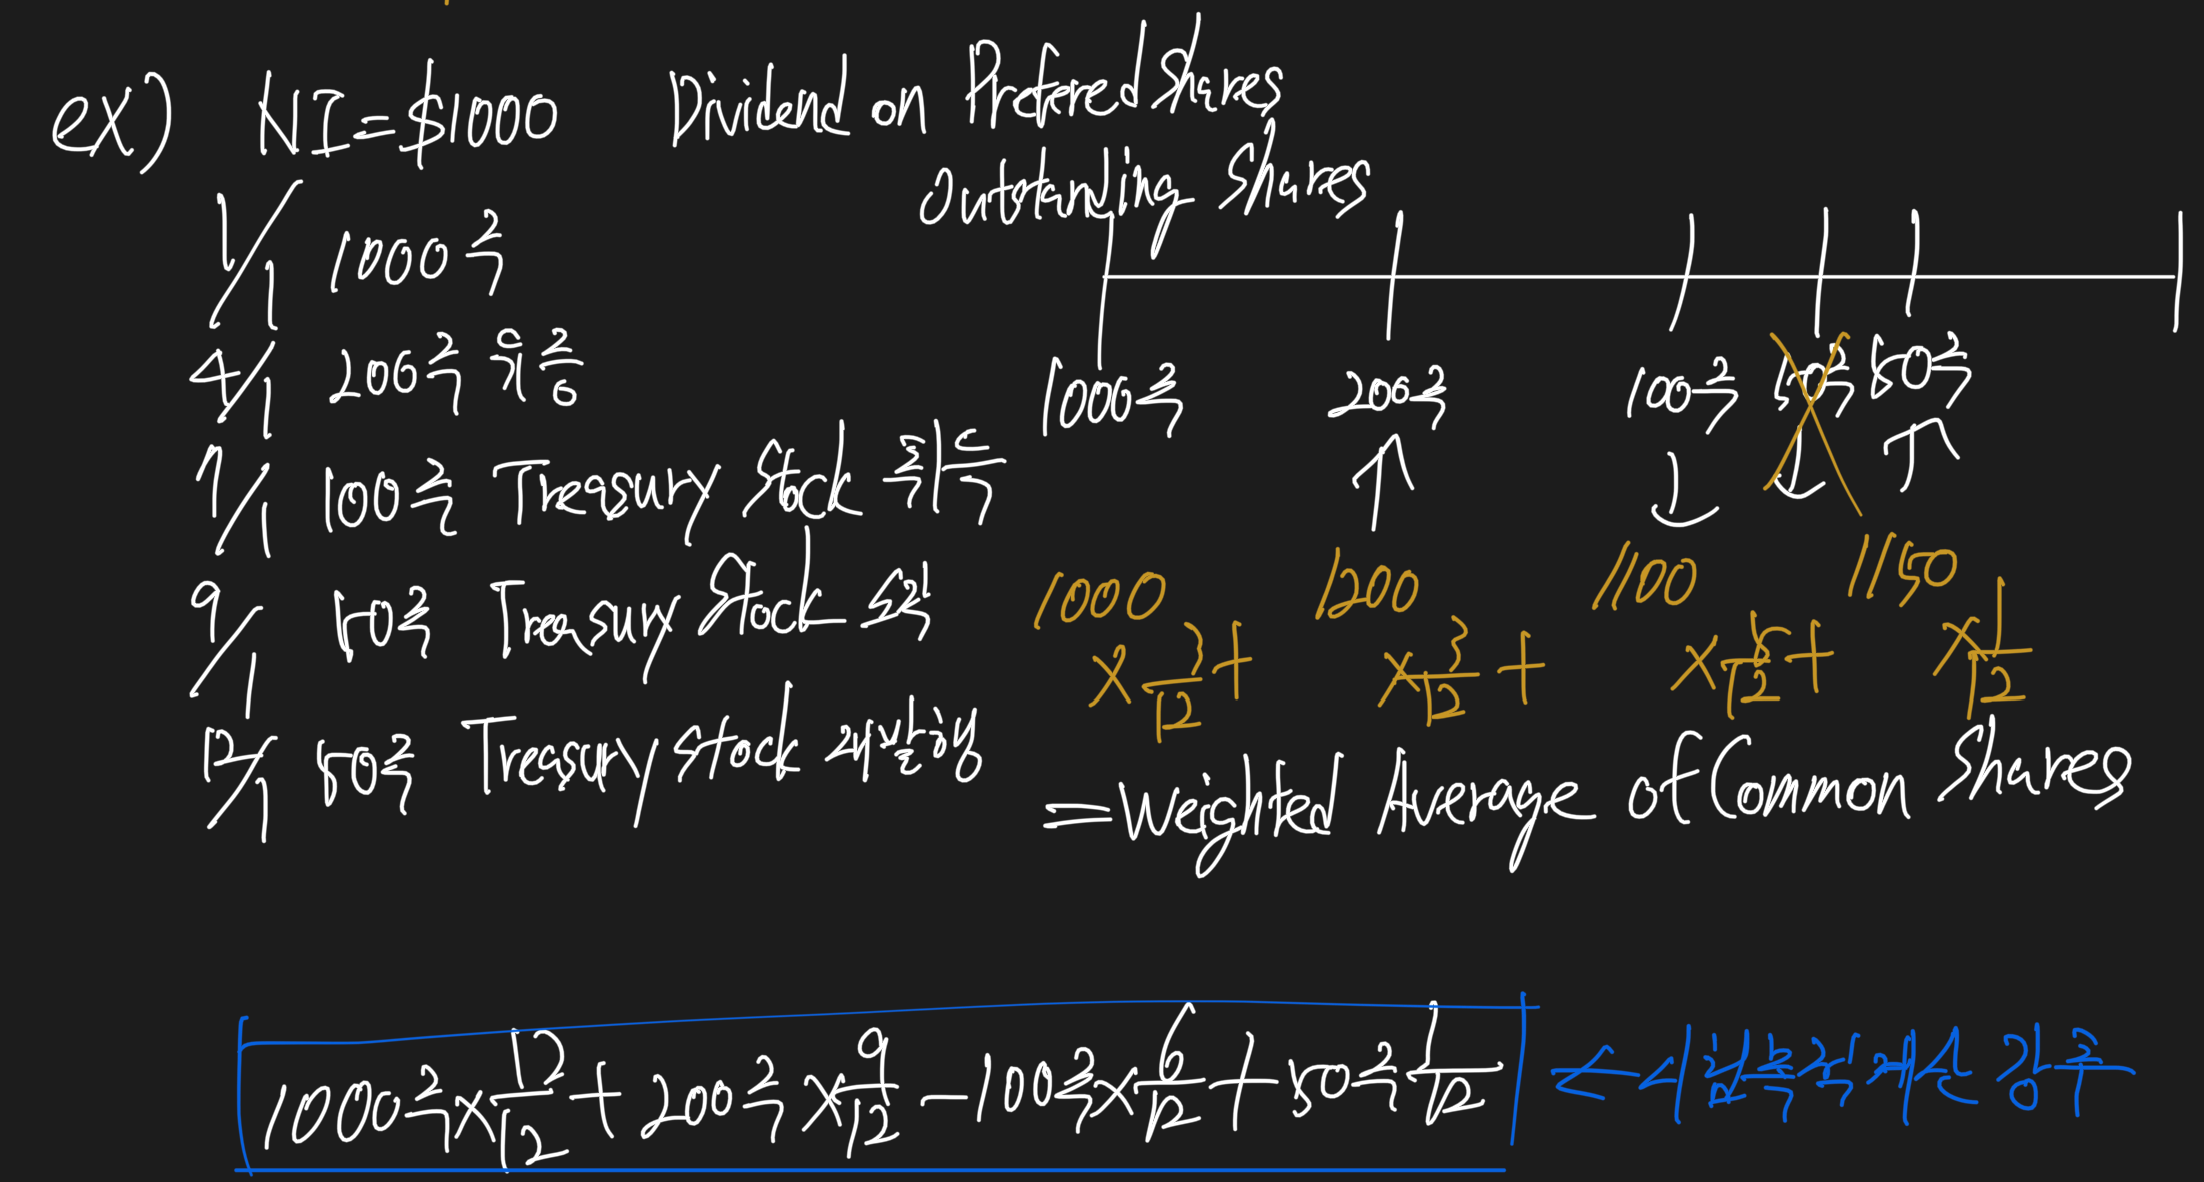 ex) NI=$1000 Dividend on Prefered Shares
Outstanding Shares
1/1 1000주
4/1 200주 유상
7/1 100주 Treasury Stock 취득
9/1 50주 Treasury Stock 소각
12/1 50주 Treasury Stock 재발행
1000주 200주 100주 50주 50주
↑ ↓ ↓ ↑
1000 1200 1100 1150
×3/12+ ×3/12+ ×5/12+ ×1/12
=Weighted Average of Common Shares
1000주×12/12+200주×9/12-100주×6/12+50주1/12